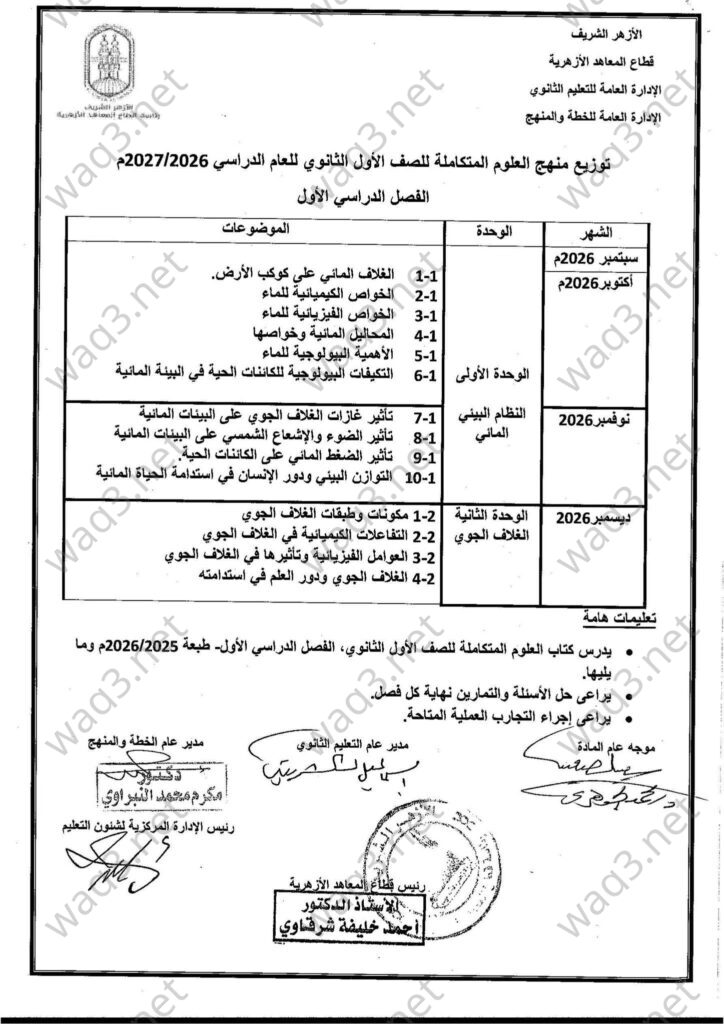 الأزهر الشريف
قطاع المعاهد الأزهرية
الإدارة العامة للتعليم الثانوي
الإدارة العامة للخطة والمنهج
الأزهر الشريف
رئاسة قطاع المعاهد الأزهرية
توزيع منهج العلوم المتكاملة للصف الأول الثانوي للعام الدراسي 2027/2026م
الفصل الدراسي الأول
الشهر الوحدة الموضوعات
سبتمبر 2026م
أكتوبر2026م
الوحدة الأولى
النظام البيئي
المائي
1-1 الغلاف المائي على كوكب الأرض.
2-1 الخواص الكيميائية للماء
3-1 الخواص الفيزيائية للماء
4-1 المحاليل المائية وخواصها
5-1 الأهمية البيولوجية للماء
6-1 التكيفات البيولوجية للكائنات الحية في البيئة المائية
نوفمبر2026
7-1 تأثير غازات الغلاف الجوي على البيئات المائية
8-1 تأثير الضوء والإشعاع الشمسي على البيئات المائية
9-1 تأثير الضغط المائي على الكائنات الحية.
10-1 التوازن البيئي ودور الإنسان في استدامة الحياة المائية
ديسمبر2026
الوحدة الثانية
الغلاف الجوي
1-2 مكونات وطبقات الغلاف الجوي
2-2 التفاعلات الكيميائية في الغلاف الجوي
3-2 العوامل الفيزيائية وتأثيرها في الغلاف الجوي
4-2 الغلاف الجوي ودور العلم في استدامته
تعليمات هامة
• يدرس كتاب العلوم المتكاملة للصف الأول الثانوي، الفصل الدراسي الأول- طبعة 2026/2025م وما
يليها.
• يراعى حل الأسئلة والتمارين نهاية كل فصل.
• يراعى إجراء التجارب العملية المتاحة.
موجه عام المادة
مدير عام التعليم الثانوي
مدير عام الخطة والمنهج
دكتور
مكرم محمد النبراوي
رئيس الإدارة المركزية لشئون التعليم
رئيس قطاع المعاهد الأزهرية
الأستاذ الدكتور
أحمد خليفة شرقاوي
waq3.net